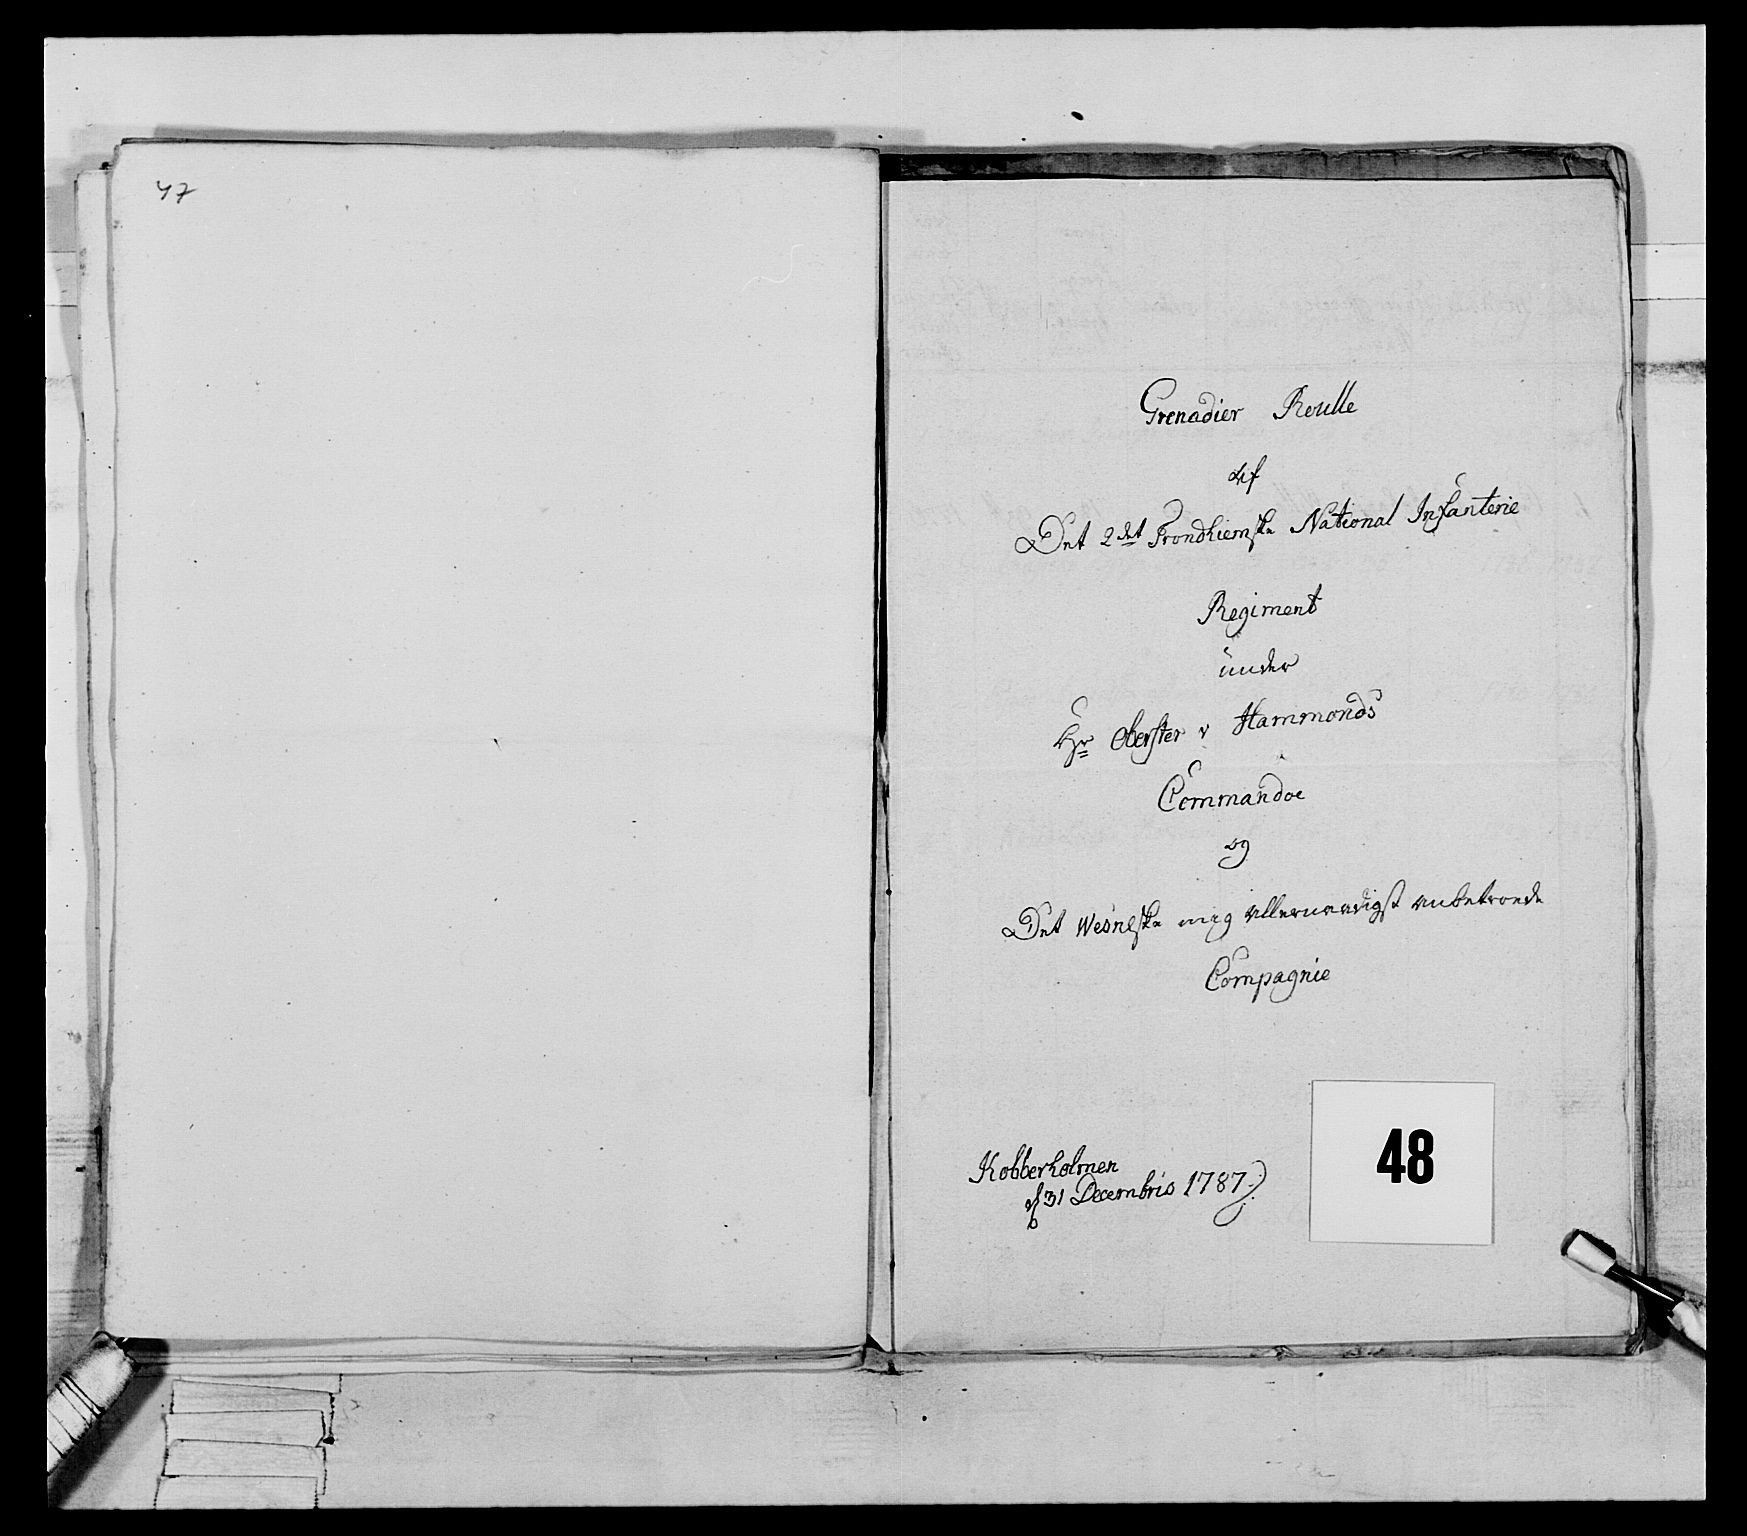 47
Grenadier Roulle
Af
Det 2det Trondhiemske National Infanterie
Regiment
under
Hr Oberster v Hammonds
Commandoe
og
Det mig allernaadigst anbetroede
Compagnie
Kobberholmen
d 31 Decembris 1787
48